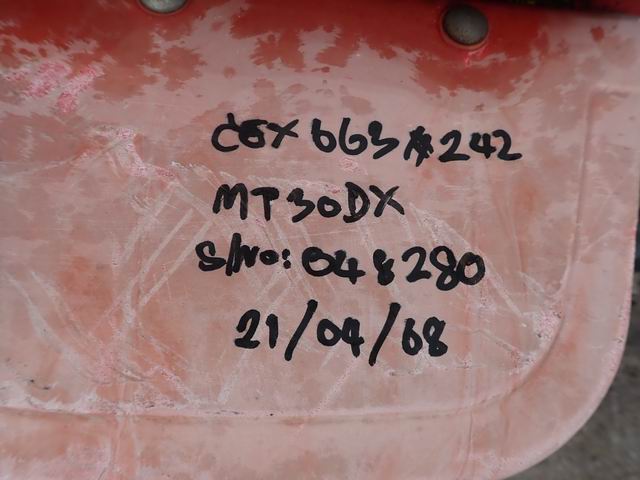 CGX 663 # 242
MT30DX
S/No: 048280
21/04/68